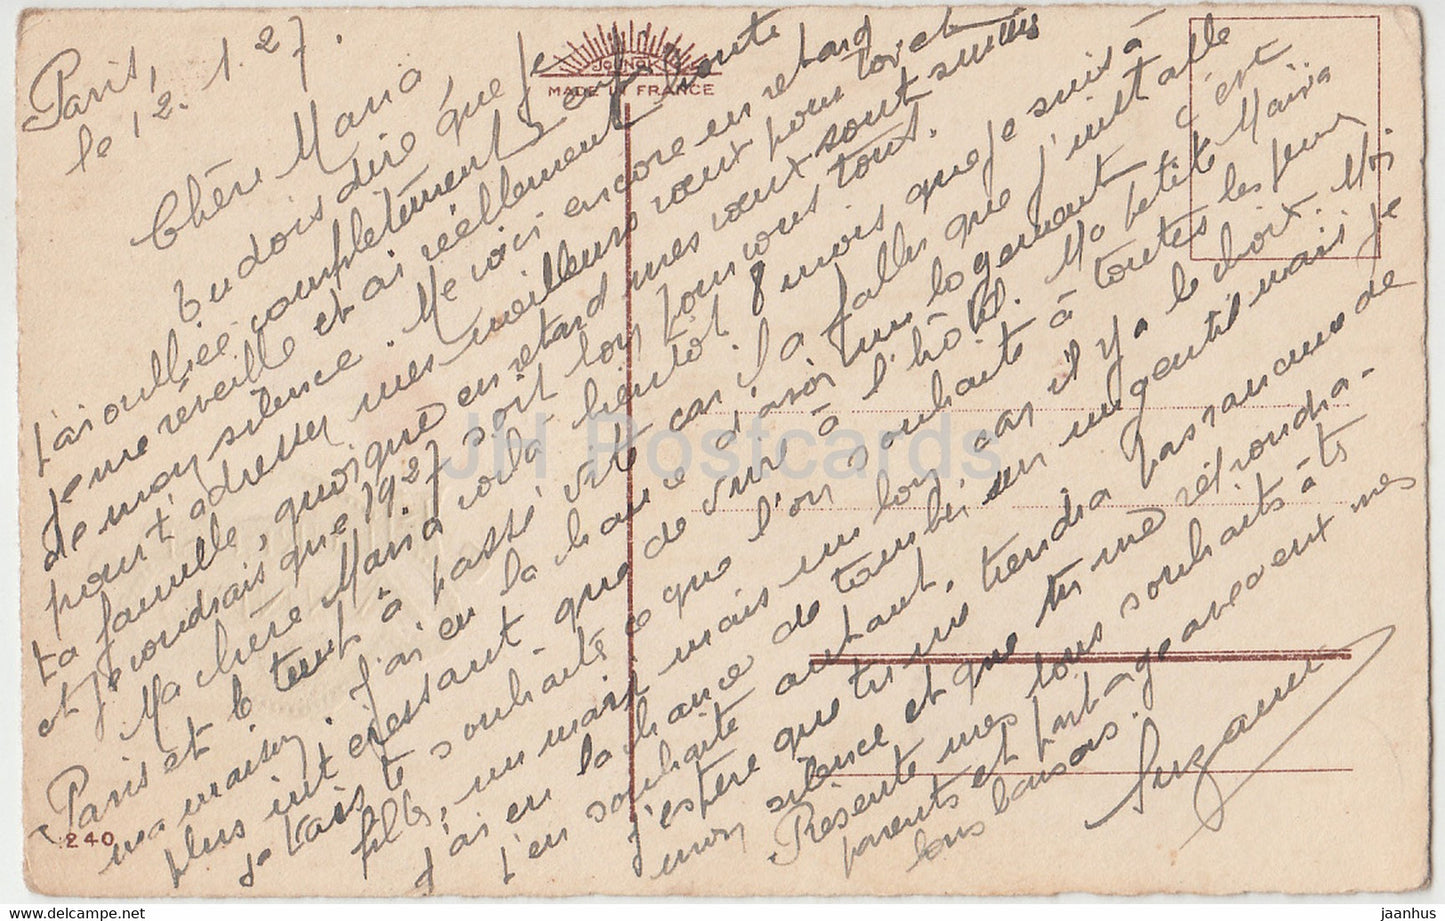 Paris,
le 12. 1. 27.
Chère Maria
tu dois dire que je
t'ai oubliée complètement
Je me réveille et ai réellement honte
de mon silence. Me voici encore en retard
pour t'adresser mes meilleurs vœux pour toi et
ta famille, quoique en retard mes vœux sont sincères
et je voudrais que 1927 soit bon pour vous tous.
Ma chère Maria voilà bientôt 8 mois que je suis à
Paris et le temps à passé vite car il a fallu que j'installe
ma maison. J'ai eu la chance d'avoir un logement c'est
plus intéressant que de vivre à l'hôtel. Ma petite Maria
je vais te souhaité ce que l'on souhaite à toutes les jeunes
filles, un mari mais un bon, car il y a le choix. Moi
j'ai eu la chance de tomber sur un gentil mais je
t'en souhaite autant.
J'espère que tu ne tiendra pas rancune de
mon silence et que tu me répondra-
Présente mes bons souhaits à tes
parents et partage avec eux mes
bons baisers.
Suzanne
JOUNOK
MADE IN FRANCE
240
JH Postcards
jaanhus @ www.delcampe.net